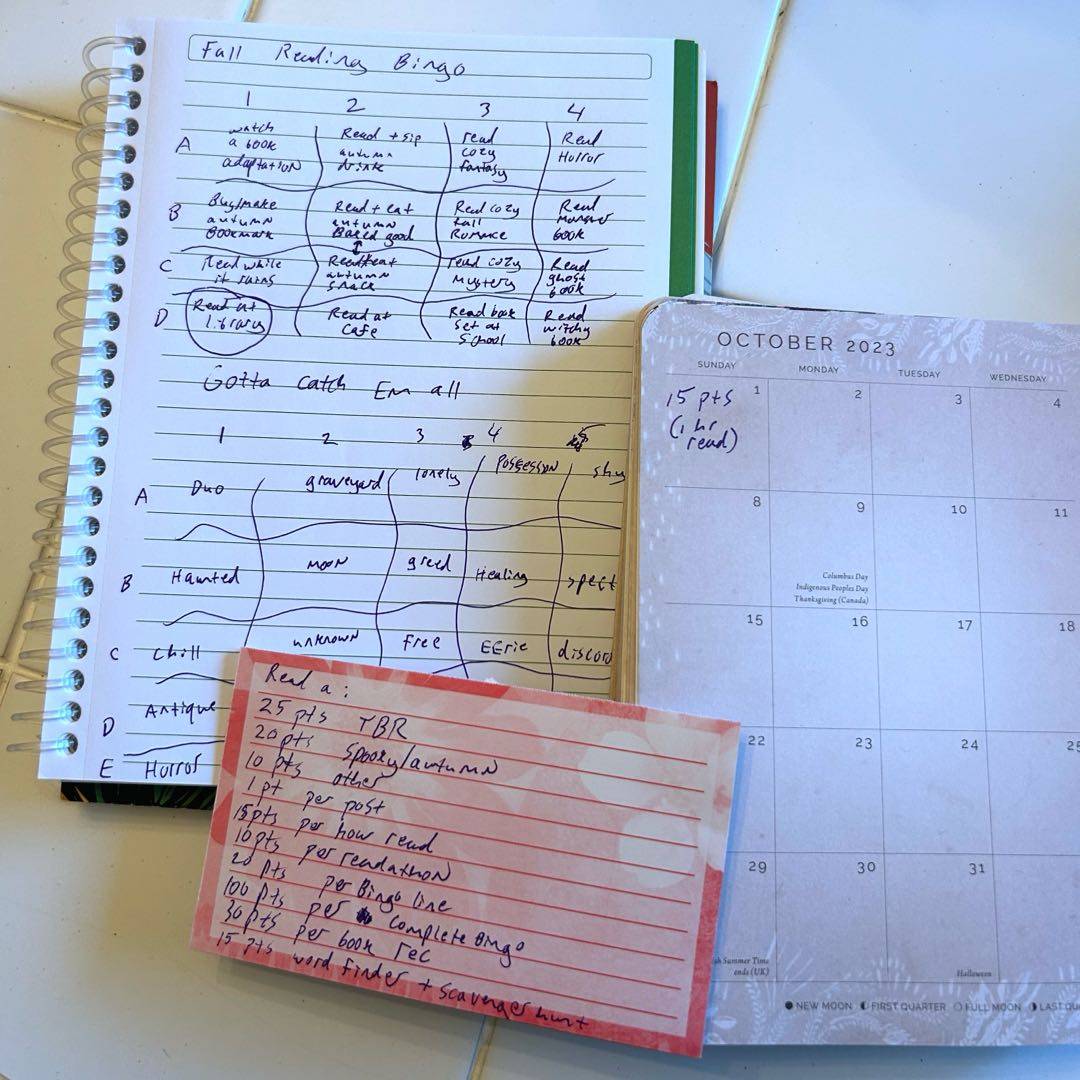 Fall Reading Bingo
1 2 3 4
A
watch
a book
adaptation
Read + sip
autumn
drink
read
cozy
fantasy
Read
Horror
B
Buy/make
autumn
Bookmark
Read + eat
autumn
Baked good
Read cozy
fall
Romance
Read
monster
book
C
Read while
it rains
Read+eat
autumn
snack
read cozy
mystery
Read
ghost
book
D
Read at
library
Read at
cafe
Read book
set at
school
Read
witchy
book
Gotta catch Em all
1 2 3 4 5
A Duo graveyard lonely Possession shy
B Haunted moon greed Healing spect
C Chill unknown Free EErie discord
D Antique
E Horror
Read a:
25 pts TBR
20 pts spooky/autumn
10 pts other
1 pt per post
15pts per hour read
10pts per readathon
20 pts per Bingo line
100 pts per complete Bingo
30 pts per book rec
15 pts word finder + scavenger hunt
OCTOBER 2023
SUNDAY MONDAY TUESDAY WEDNESDAY
1 2 3 4
15 pts
(1 hr
read)
8 9 10 11
Columbus Day
Indigenous Peoples Day
Thanksgiving (Canada)
15 16 17 18
22 23 24 25
29 30 31
sh Summer Time
ends (UK)
Halloween
NEW MOON FIRST QUARTER FULL MOON LAST QU